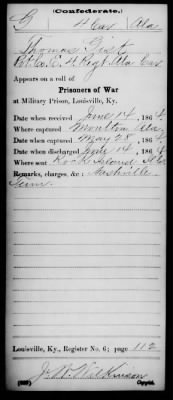 (Confederate.)
G 4 Cav Ala
Thomas Gist
Pt. Co. G 4 Regt. Ala Cav
Appears on a roll of
Prisoners of War
at Military Prison, Louisville, Ky.
Date when received June 14, 1864
Where captured Moulton Ala
Date when captured May 28, 1864
Date when discharged June 14, 186
Where sent Rock Island Ills
Remarks, charges, &c: Nashville
Tenn
Louisville, Ky., Register No. 6; page 112
J. W. Wilkinson
Copyist.